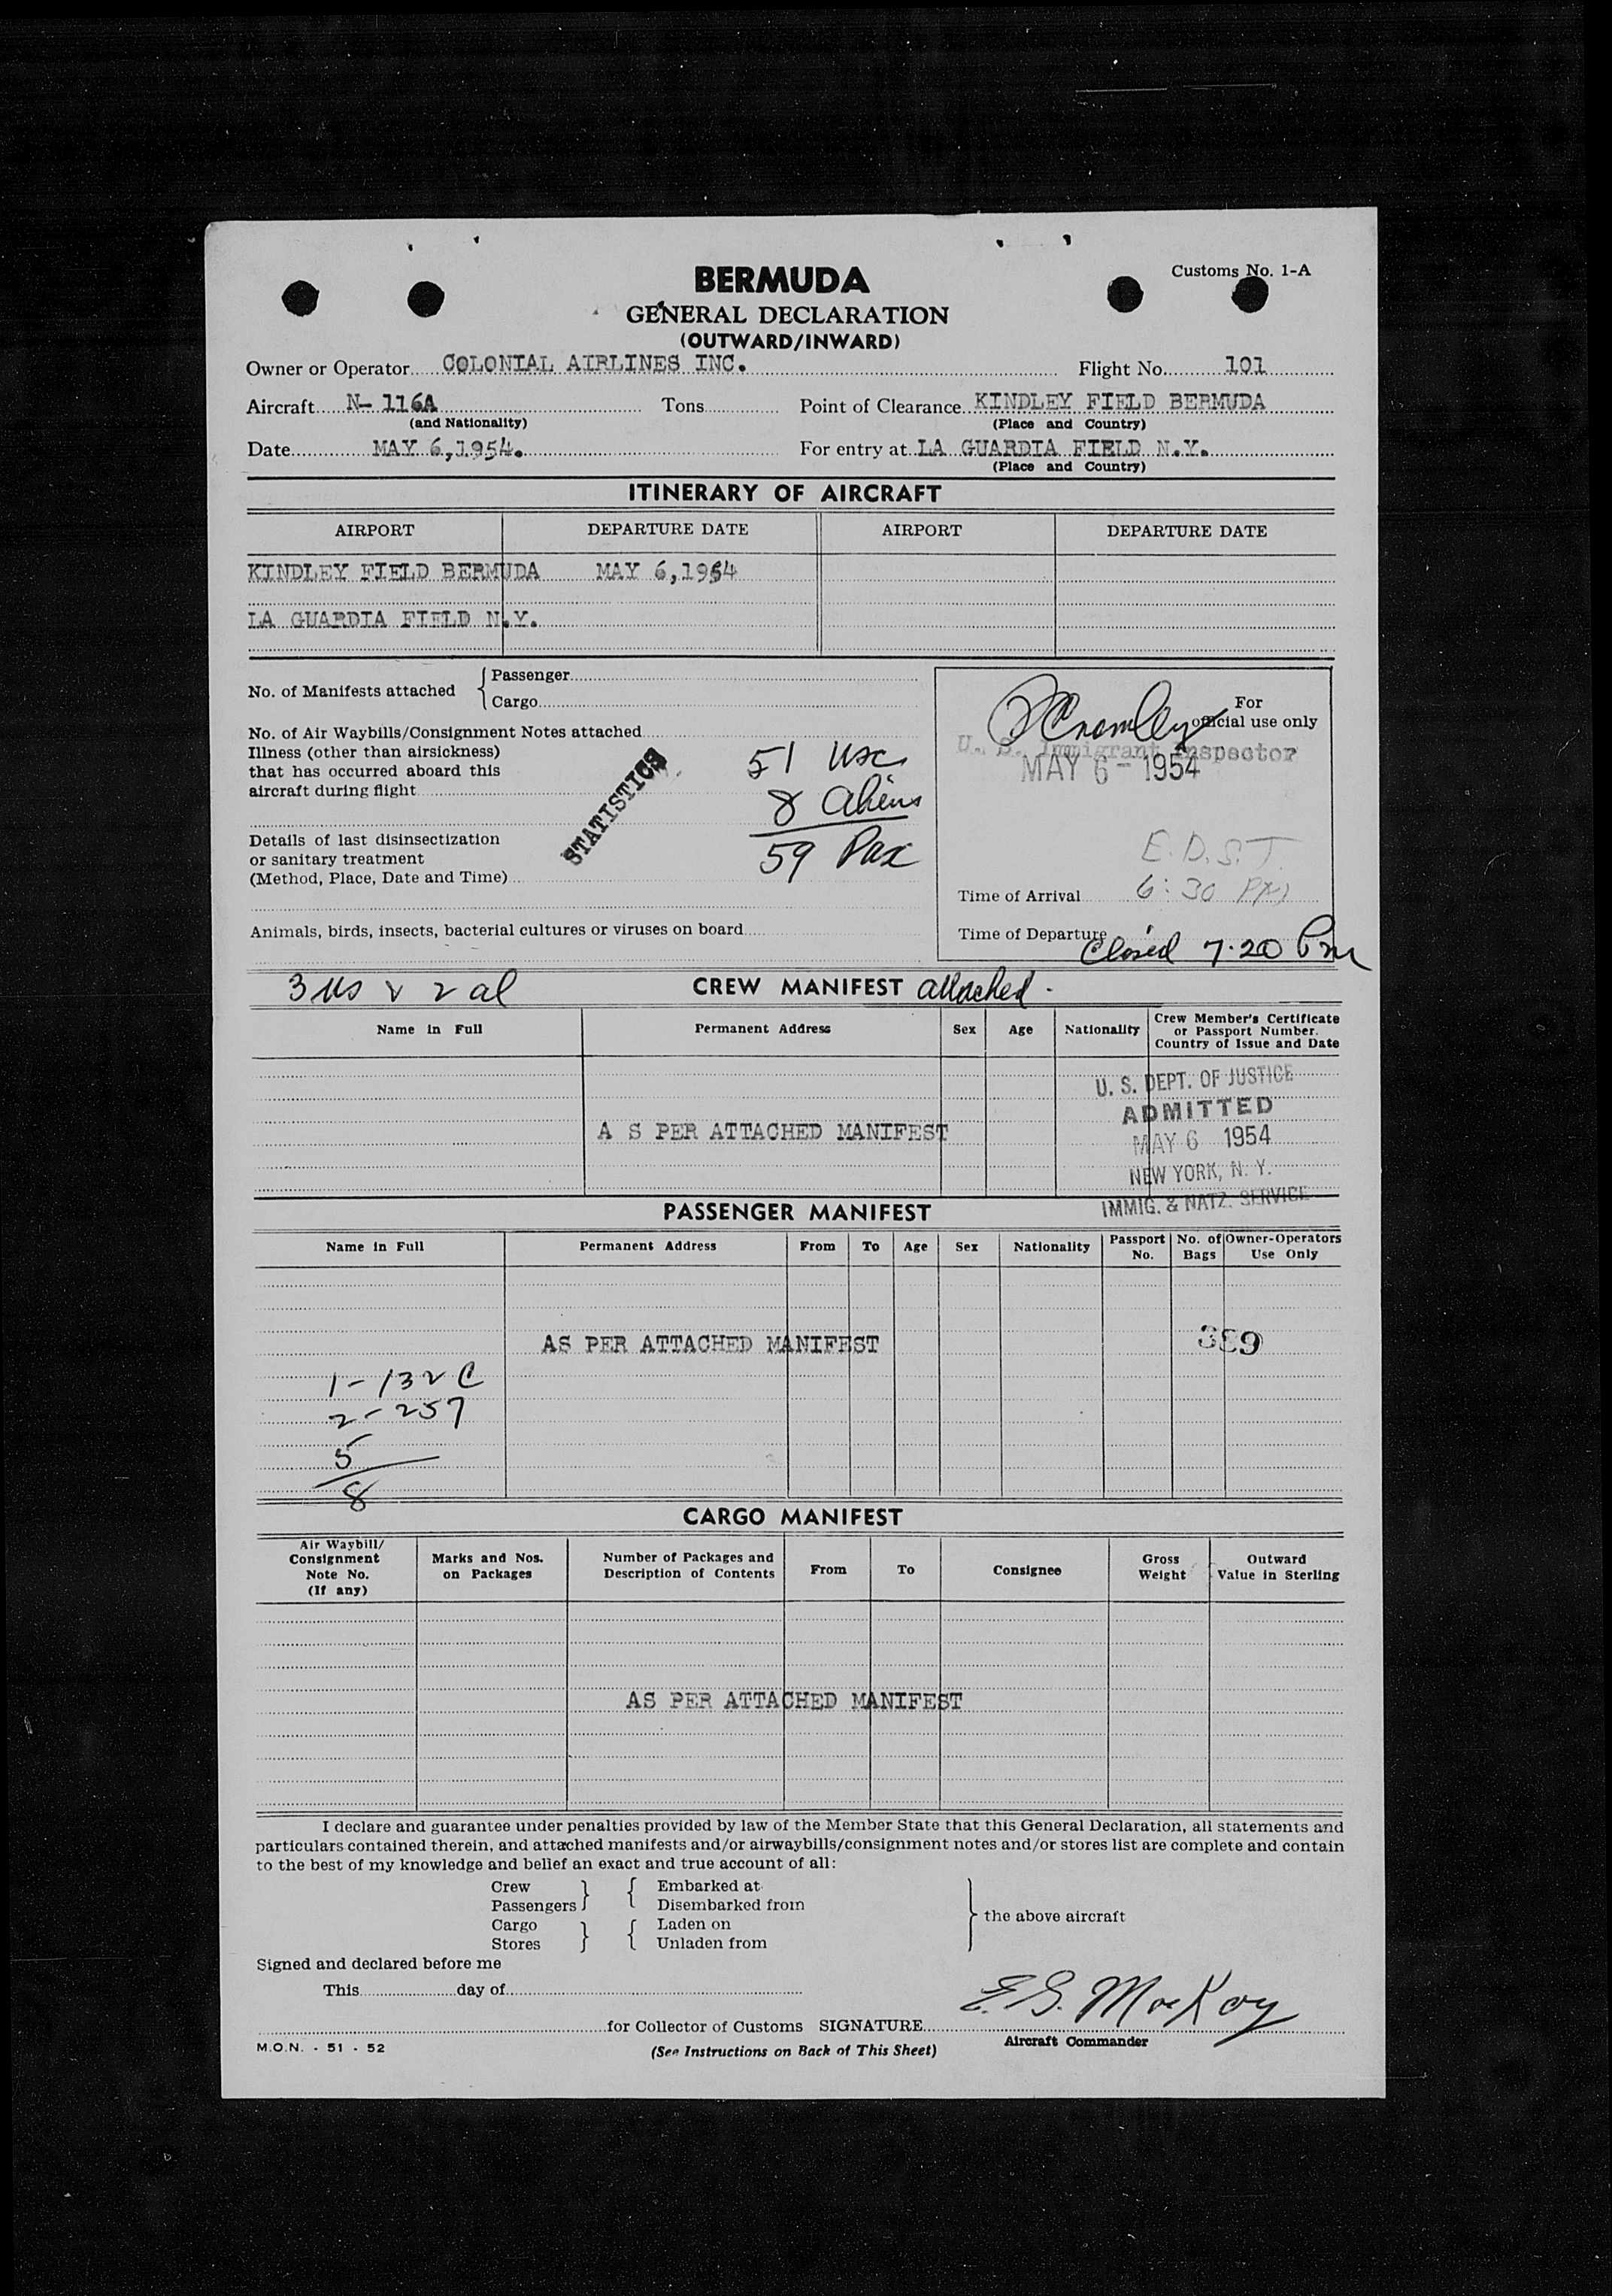 Customs No. 1-A
BERMUDA
GENERAL DECLARATION
(OUTWARD/INWARD)
Owner or Operator COLONIAL AIRLINES INC. Flight No. 101
Aircraft N- 116A Tons Point of Clearance KINDLEY FIELD BERMUDA
(and Nationality) (Place and Country)
Date MAY 6,1954. For entry at LA GUARDIA FIELD N.Y.
(Place and Country)
ITINERARY OF AIRCRAFT
AIRPORT DEPARTURE DATE AIRPORT DEPARTURE DATE
KINDLEY FIELD BERMUDA MAY 6,1954
LA GUARDIA FIELD N.Y.
No. of Manifests attached { Passenger
Cargo
For
official use only
No. of Air Waybills/Consignment Notes attached
Illness (other than airsickness)
that has occurred aboard this
aircraft during flight
U. S. Immigrant Inspector
MAY 6 - 1954
STATISTICS
51 USC
8 Aliens
59 Pax
Details of last disinsectization
or sanitary treatment
(Method, Place, Date and Time)
E.D.S.T
Time of Arrival 6:30 PM
Animals, birds, insects, bacterial cultures or viruses on board
Time of Departure
Closed 7.20 Pm
3 US & 2 al CREW MANIFEST attached.
Name in Full Permanent Address Sex Age Nationality Crew Member's Certificate
or Passport Number.
Country of Issue and Date
A S PER ATTACHED MANIFEST
U. S. DEPT. OF JUSTICE
ADMITTED
MAY 6 1954
NEW YORK, N. Y.
IMMIG. & NATZ. SERVICE
PASSENGER MANIFEST
Name in Full Permanent Address From To Age Sex Nationality Passport No. No. of Bags Owner-Operators Use Only
AS PER ATTACHED MANIFEST
1 - 132 C
2 - 257
5
8
CARGO MANIFEST
Air Waybill/
Consignment
Note No.
(If any)
Marks and Nos.
on Packages
Number of Packages and
Description of Contents
From To Consignee
Gross
Weight
Outward
Value in Sterling
AS PER ATTACHED MANIFEST
I declare and guarantee under penalties provided by law of the Member State that this General Declaration, all statements and
particulars contained therein, and attached manifests and/or airwaybills/consignment notes and/or stores list are complete and contain
to the best of my knowledge and belief an exact and true account of all:
Crew } { Embarked at
Passengers Disembarked from
Cargo } { Laden on
Stores Unladen from
} the above aircraft
Signed and declared before me
This day of
for Collector of Customs SIGNATURE E.G. MacKay
Aircraft Commander
M.O.N. - 51 - 52
(See Instructions on Back of This Sheet)